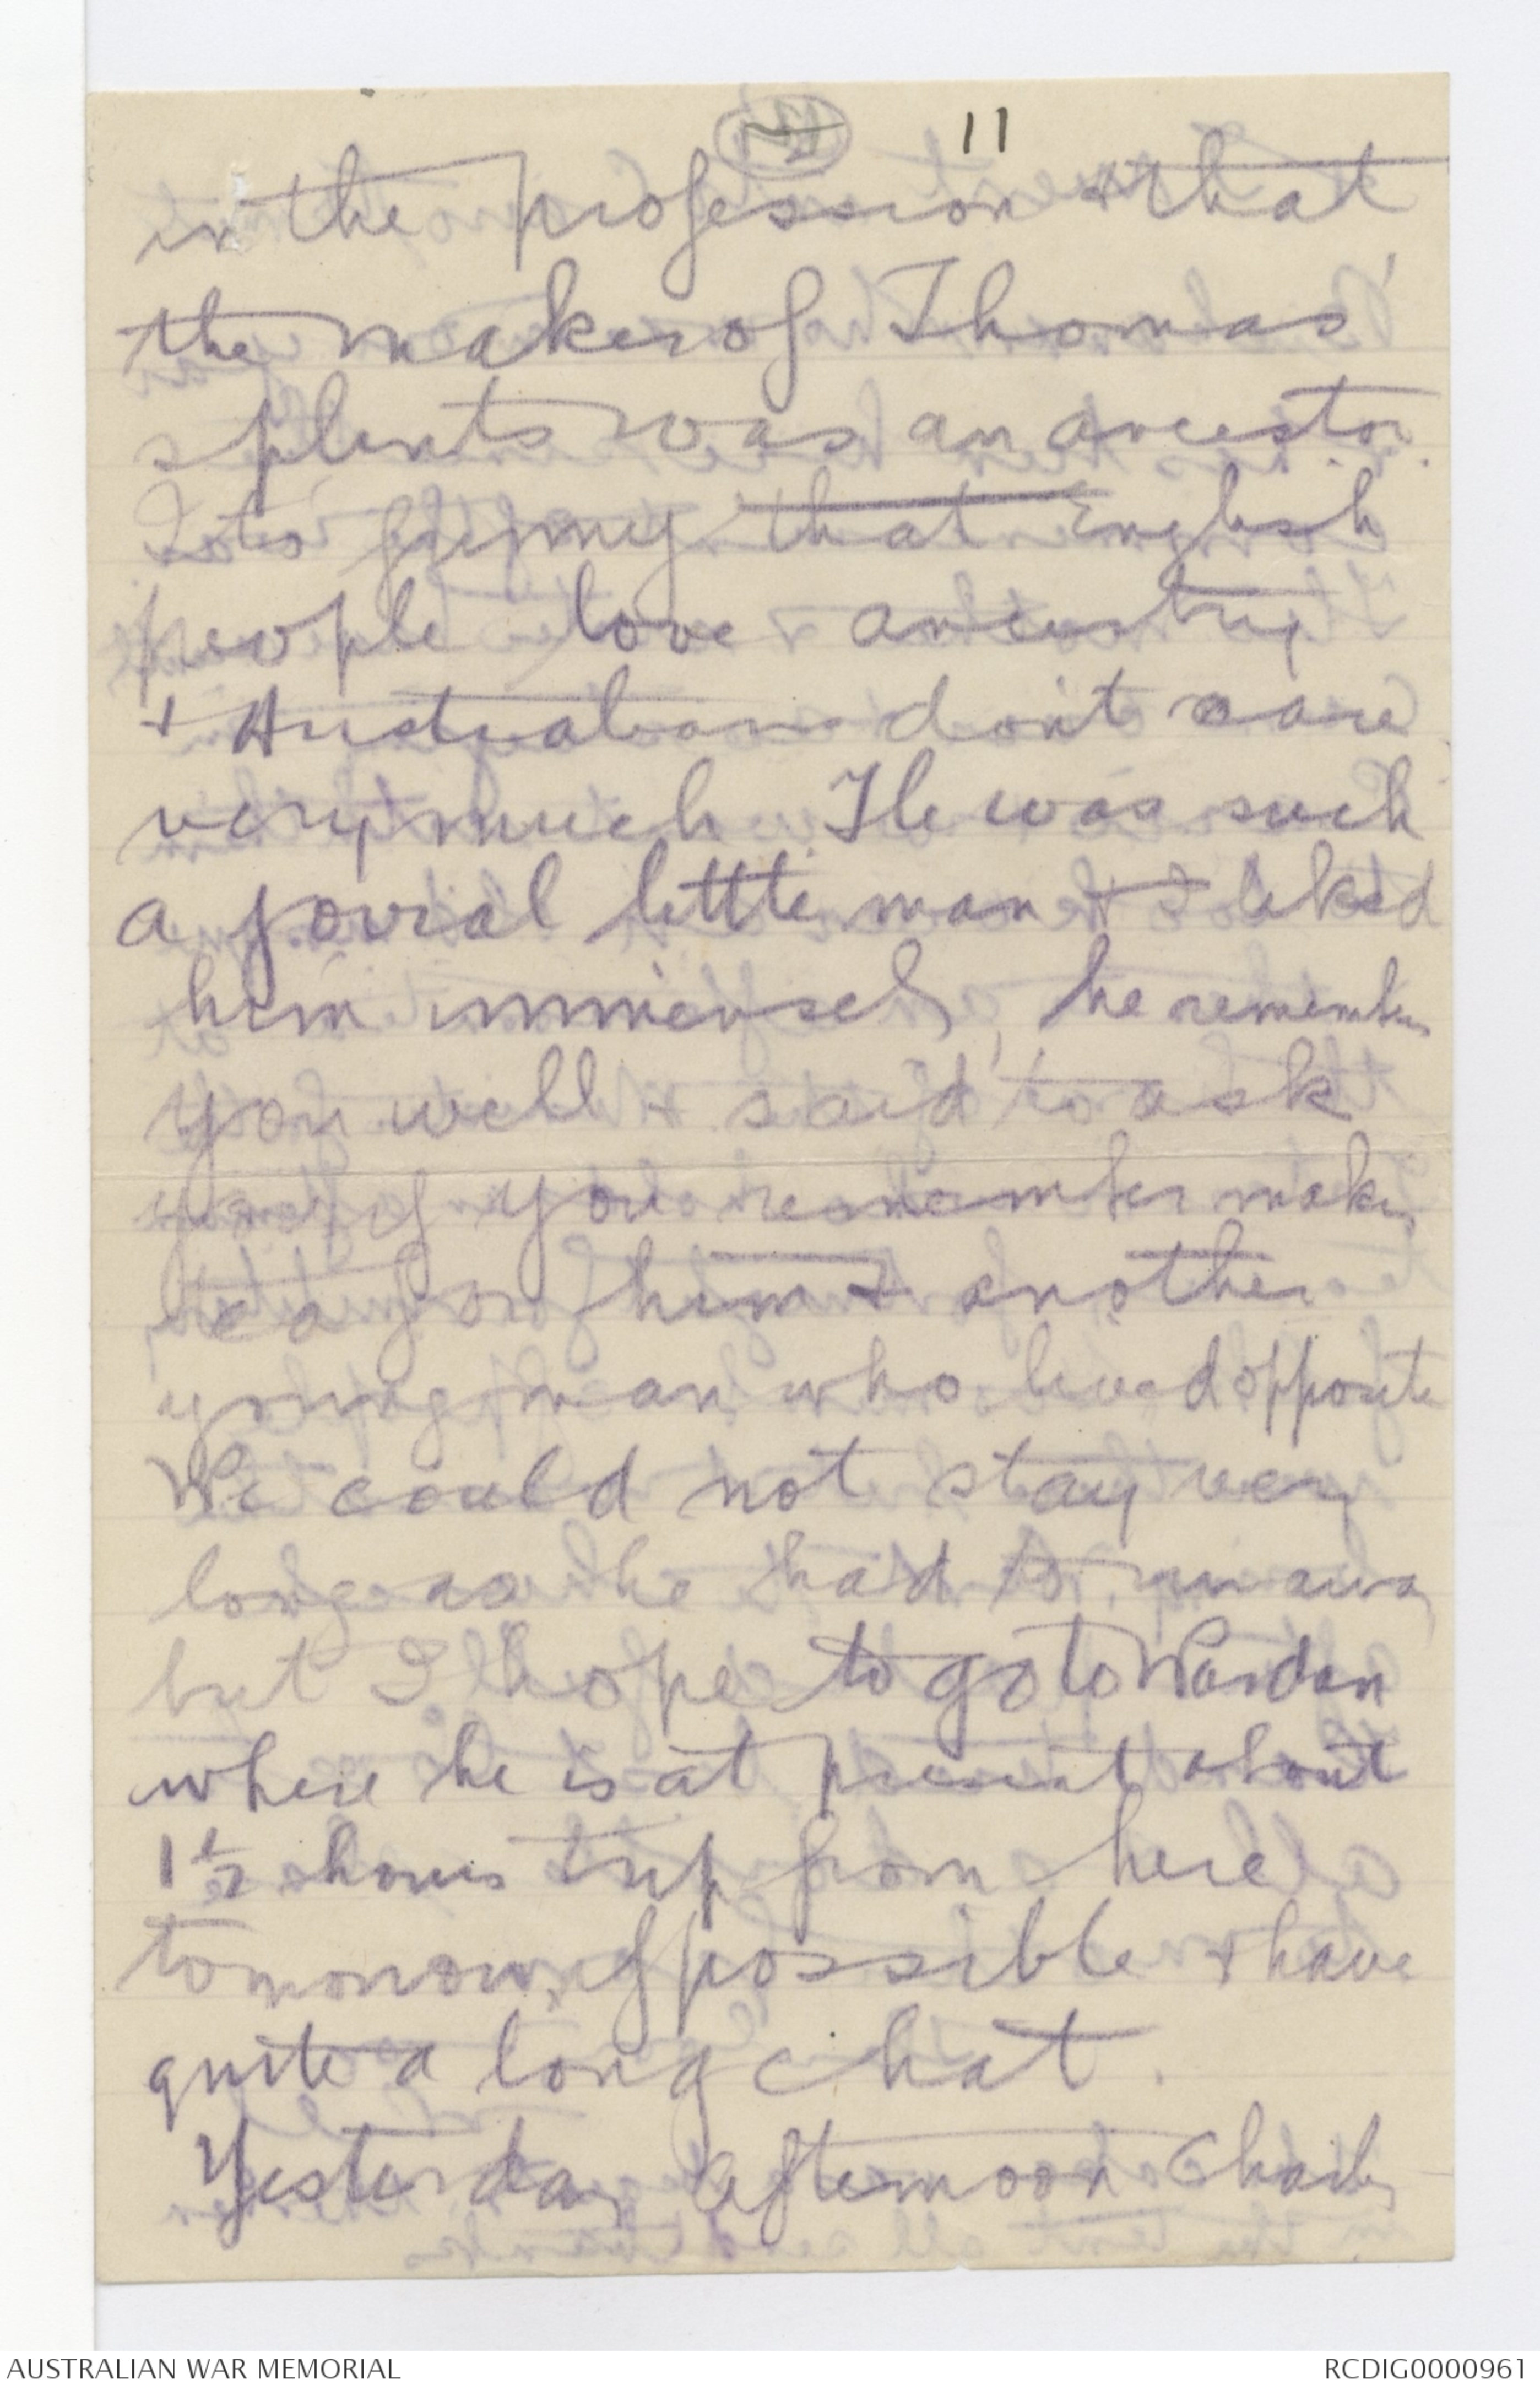 11
in the profession & that
the maker of Thomas'
splints was an ancestor.
Its' funny that English
people love ancestry
& Australians don't care
very much. He was such
a jovial little man & I liked
him immensely, he remembers
you well & said to ask
you if you remember making
tea for him & another
young man who lived opposite
We could not stay very
long as he had to run away
but I hope to go to Wardan
where he is at present about
1½ hours trip from here
tomorrow, if possible & have
quite a long chat.
Yesterday afternoon Charley
AUSTRALIAN WAR MEMORIAL
RCDIG0000961